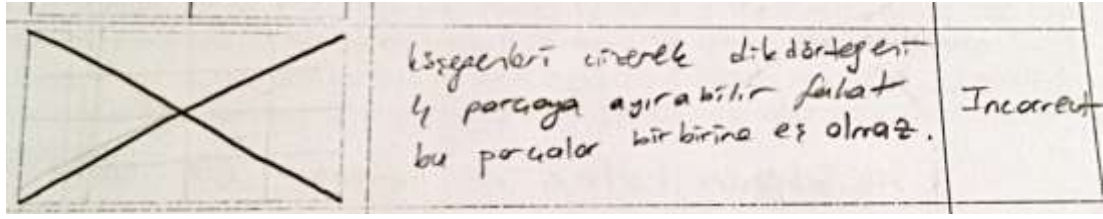 köşegenleri çizerek dikdörtgeni
4 parçaya ayırabilir fakat
bu parçalar birbirine eş olmaz.
Incorrect